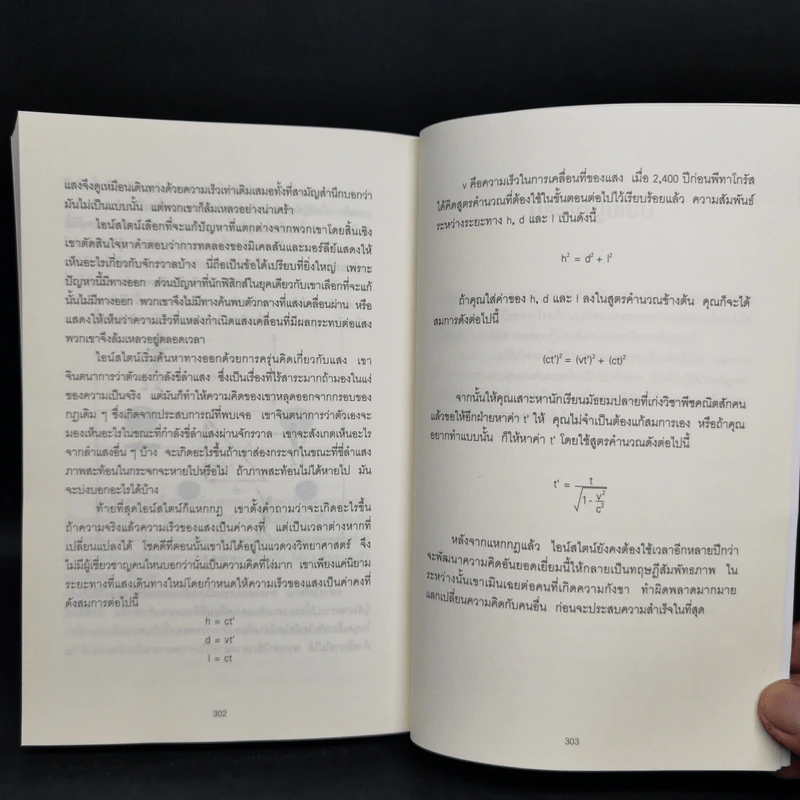 แสงจึงดูเหมือนเดินทางด้วยความเร็วเท่าเดิมเสมอทั้งที่สามัญสำนึกบอกว่า
มันไม่เป็นแบบนั้น แต่พวกเขาก็ล้มเหลวอย่างน่าเศร้า
ไอน์สไตน์เลือกที่จะแก้ปัญหาที่แตกต่างจากพวกเขาโดยสิ้นเชิง
เขาตัดสินใจหาคำตอบว่าการทดลองของมิเคลสันและมอร์ลีย์แสดงให้
เห็นอะไรเกี่ยวกับจักรวาลบ้าง นี่ถือเป็นข้อได้เปรียบที่ยิ่งใหญ่ เพราะ
ปัญหานี้มีทางออก ส่วนปัญหาที่นักฟิสิกส์ในยุคเดียวกับเขาเลือกที่จะแก้
นั้นไม่มีทางออก พวกเขาจึงไม่มีทางค้นพบตัวกลางที่แสงเคลื่อนผ่าน หรือ
แสดงให้เห็นว่าความเร็วที่แหล่งกำเนิดแสงเคลื่อนที่มีผลกระทบต่อแสง
พวกเขาจึงล้มเหลวอยู่ตลอดเวลา
ไอน์สไตน์เริ่มค้นหาทางออกด้วยการครุ่นคิดเกี่ยวกับแสง เขา
จินตนาการว่าตัวเองกำลังขี่ลำแสง ซึ่งเป็นเรื่องที่ไร้สาระมากถ้ามองในแง่
ของความเป็นจริง แต่มันก็ทำให้ความคิดของเขาหลุดออกจากกรอบของ
กฎเดิม ๆ ซึ่งเกิดจากประสบการณ์ที่พบเจอ เขาจินตนาการว่าตัวเองจะ
มองเห็นอะไรในขณะที่กำลังขี่ลำแสงผ่านจักรวาล เขาจะสังเกตเห็นอะไร
จากลำแสงอื่น ๆ บ้าง จะเกิดอะไรขึ้นถ้าเขาส่องกระจกในขณะที่ขี่ลำแสง
ภาพสะท้อนในกระจกจะหายไปหรือไม่ ถ้าภาพสะท้อนไม่ได้หายไป มัน
จะบ่งบอกอะไรได้บ้าง
ท้ายที่สุดไอน์สไตน์ก็แหกกฎ เขาตั้งคำถามว่าจะเกิดอะไรขึ้น
ถ้าความจริงแล้วความเร็วของแสงเป็นค่าคงที่ แต่เป็นเวลาต่างหากที่
เปลี่ยนแปลงได้ โชคดีที่ตอนนั้นเขาไม่ได้อยู่ในแวดวงวิทยาศาสตร์ จึง
ไม่มีผู้เชี่ยวชาญคนไหนบอกว่านั่นเป็นความคิดที่โง่มาก เขาเพียงแค่นิยาม
ระยะทางที่แสงเดินทางใหม่โดยกำหนดให้ความเร็วของแสงเป็นค่าคงที่
ดังสมการต่อไปนี้
h = ct'
d = vt'
l = ct
302
v คือความเร็วในการเคลื่อนที่ของแสง เมื่อ 2,400 ปีก่อนพีทาโกรัส
ได้คิดสูตรคำนวณที่ต้องใช้ในขั้นตอนต่อไปไว้เรียบร้อยแล้ว ความสัมพันธ์
ระหว่างระยะทาง h, d และ l เป็นดังนี้
h² = d² + l²
ถ้าคุณใส่ค่าของ h, d และ l ลงในสูตรคำนวณข้างต้น คุณก็จะได้
สมการดังต่อไปนี้
(ct')² = (vt')² + (ct)²
จากนั้นให้คุณเสาะหานักเรียนมัธยมปลายที่เก่งวิชาพีชคณิตสักคน
แล้วขอให้อีกฝ่ายหาค่า t' ให้ คุณไม่จำเป็นต้องแก้สมการเอง หรือถ้าคุณ
อยากทำแบบนั้น ก็ให้หาค่า t' โดยใช้สูตรคำนวณดังต่อไปนี้
t' = t / √(1 - v²/c²)
หลังจากแหกกฎแล้ว ไอน์สไตน์ยังคงต้องใช้เวลาอีกหลายปีกว่า
จะพัฒนาความคิดอันยอดเยี่ยมนี้ให้กลายเป็นทฤษฎีสัมพัทธภาพ ใน
ระหว่างนั้นเขาเมินเฉยต่อคนที่เกิดความกังขา ทำผิดพลาดมากมาย
แลกเปลี่ยนความคิดกับคนอื่น ก่อนจะประสบความสำเร็จในที่สุด
303